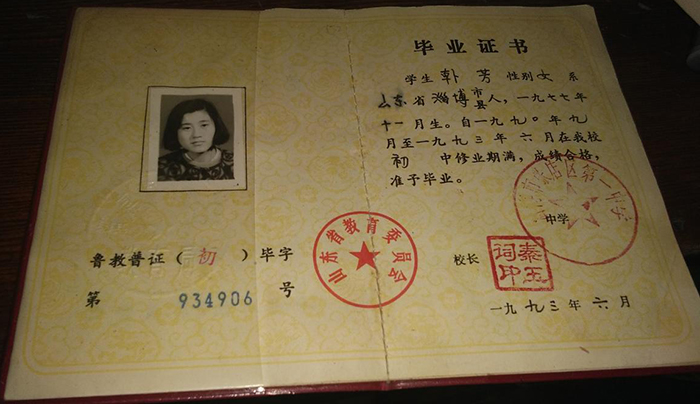 鲁教普证(初)毕字
第 934906 号
山东省教育委员会
毕业证书
学生韩芳性别女系
山东省淄博市县人,一九七七年
十一月生。自一九九〇年九
月至一九九三年六月在我校
初中修业期满,成绩合格,
准予毕业。
店区第一中学
中学
校长
秦玉
词印
一九九三年六月